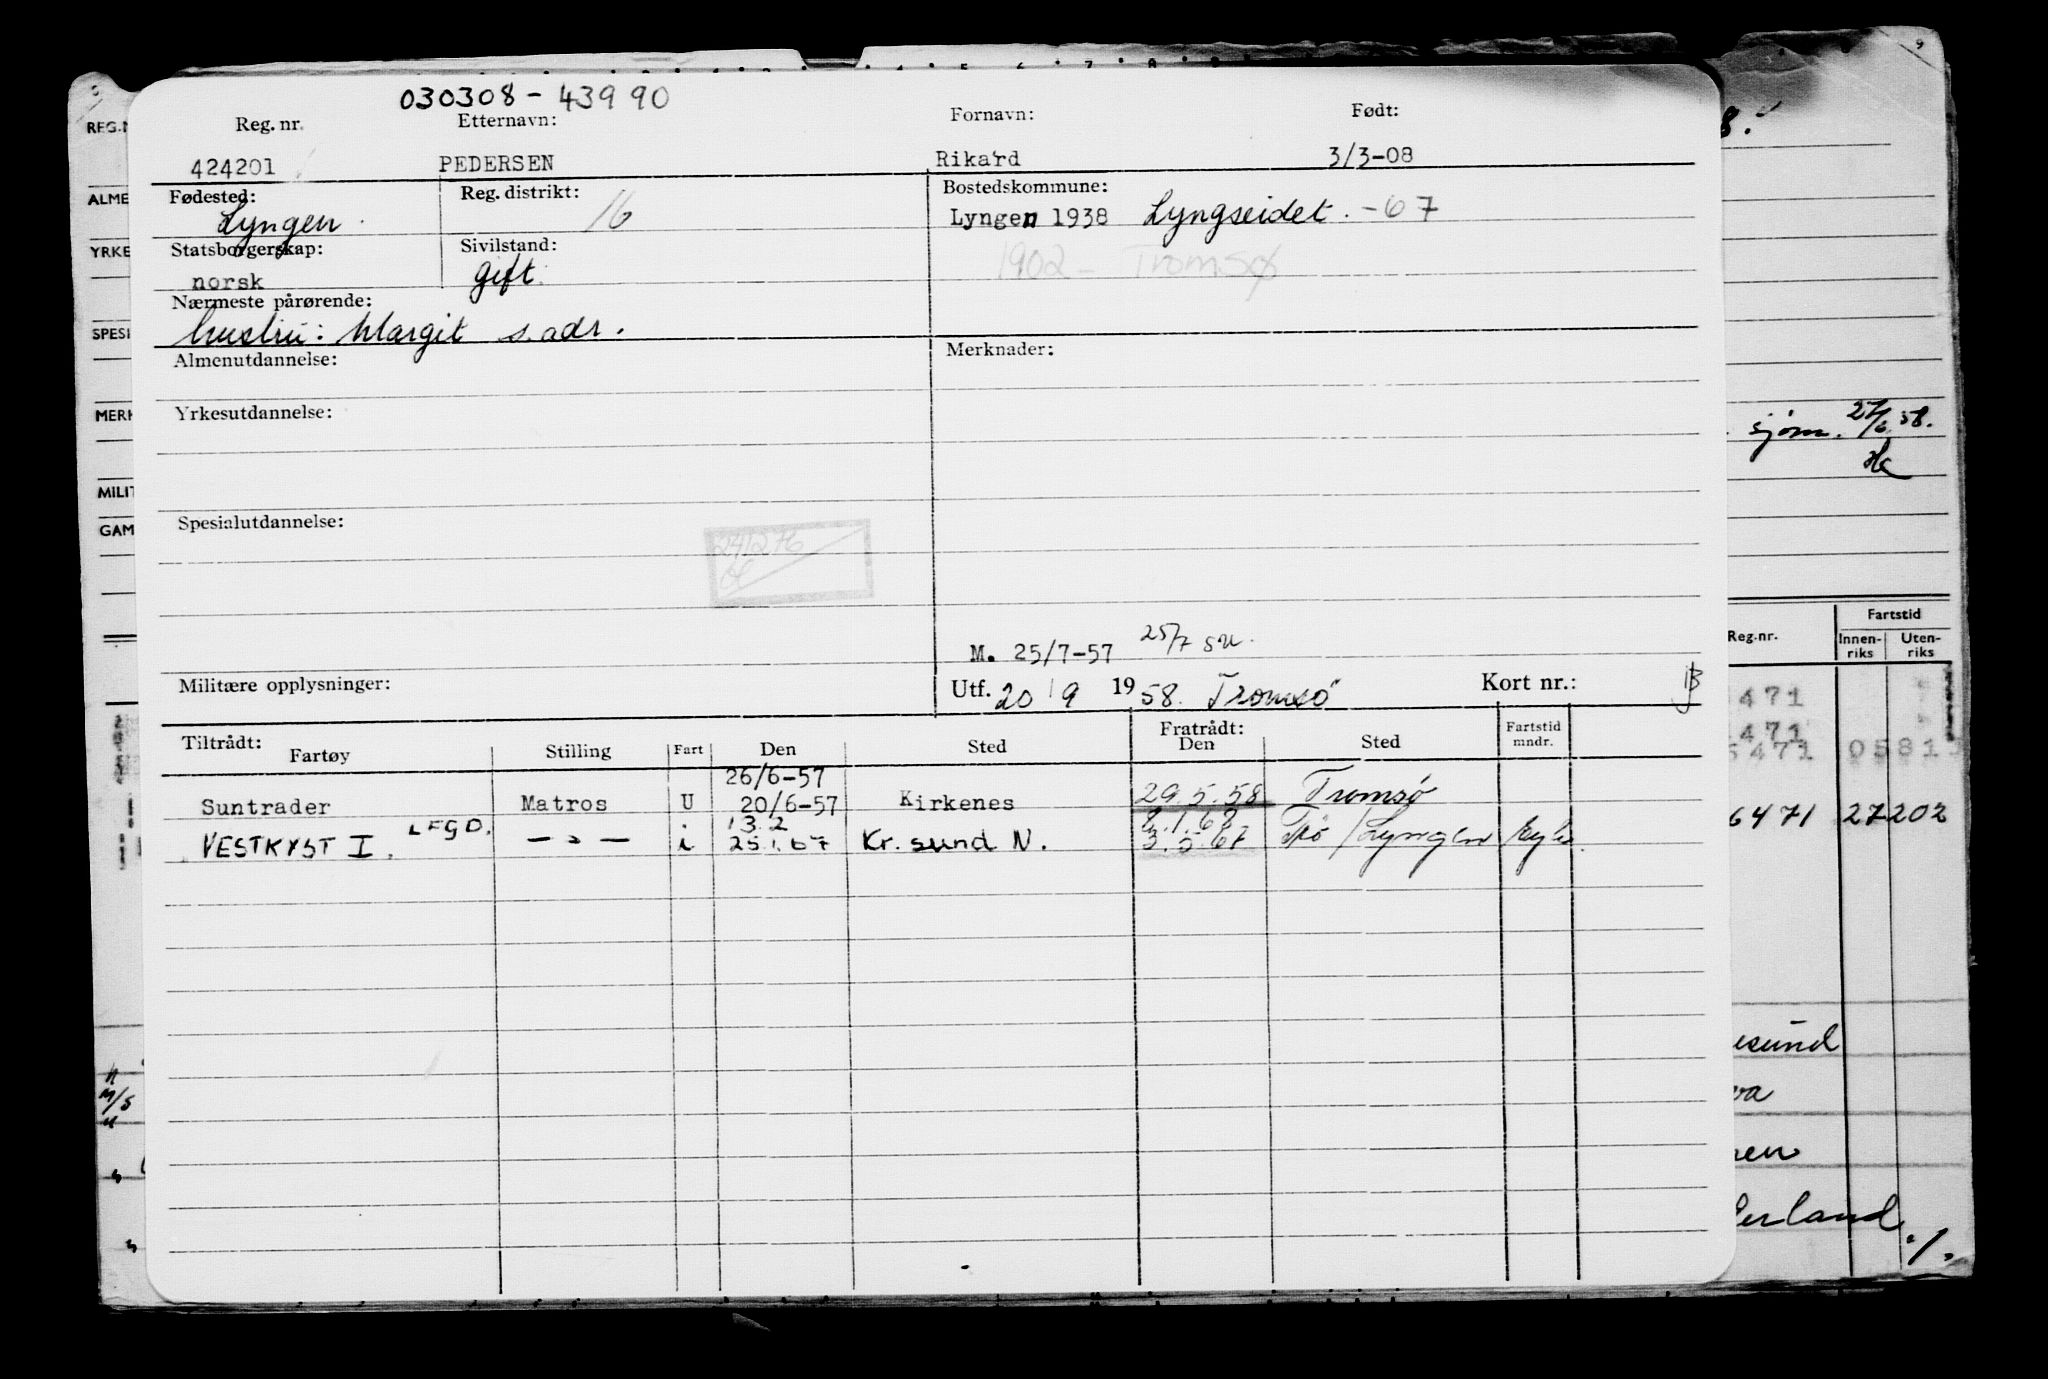 030308 - 43990
Reg. nr. Etternavn: Fornavn: Født:
424201 PEDERSEN Rikard 3/3-08
Fødested: Reg. distrikt: Bostedskommune:
Lyngen 16 Lyngen 1938 Lyngseidet. -67
Statsborgerskap: Sivilstand: 1902 - Tromsø
norsk gift.
Nærmeste pårørende:
hustru: Margit s. adr.
Almenutdannelse: Merknader:
Yrkesutdannelse:
Spesialutdannelse:
241276
M. 25/7-57 25/7 su.
Militære opplysninger: Utf. 20/9 1958. Tromsø Kort nr.:
Tiltrådt: Fratrådt: Fartstid
Fartøy Stilling Fart Den Sted Den Sted mndr.
26/6-57
Suntrader Matros U 20/6-57 Kirkenes 29.5.58 Tromsø
LFGD. i 13.2 8.1.68
VESTKYST I. — " — i 25.1.67 Kr. sund N. 3.5.67 Tsø / Lyngen
REG.N
8.
ALME
YRKE
SPESI
MERK
sjøm. 27/6.58.
MILIT
GAM
Reg.nr. Fartstid
Innen-riks Uten-riks
471
471
5471 0581
6471 27 202
esund
M/S
va
nen
derland
./.